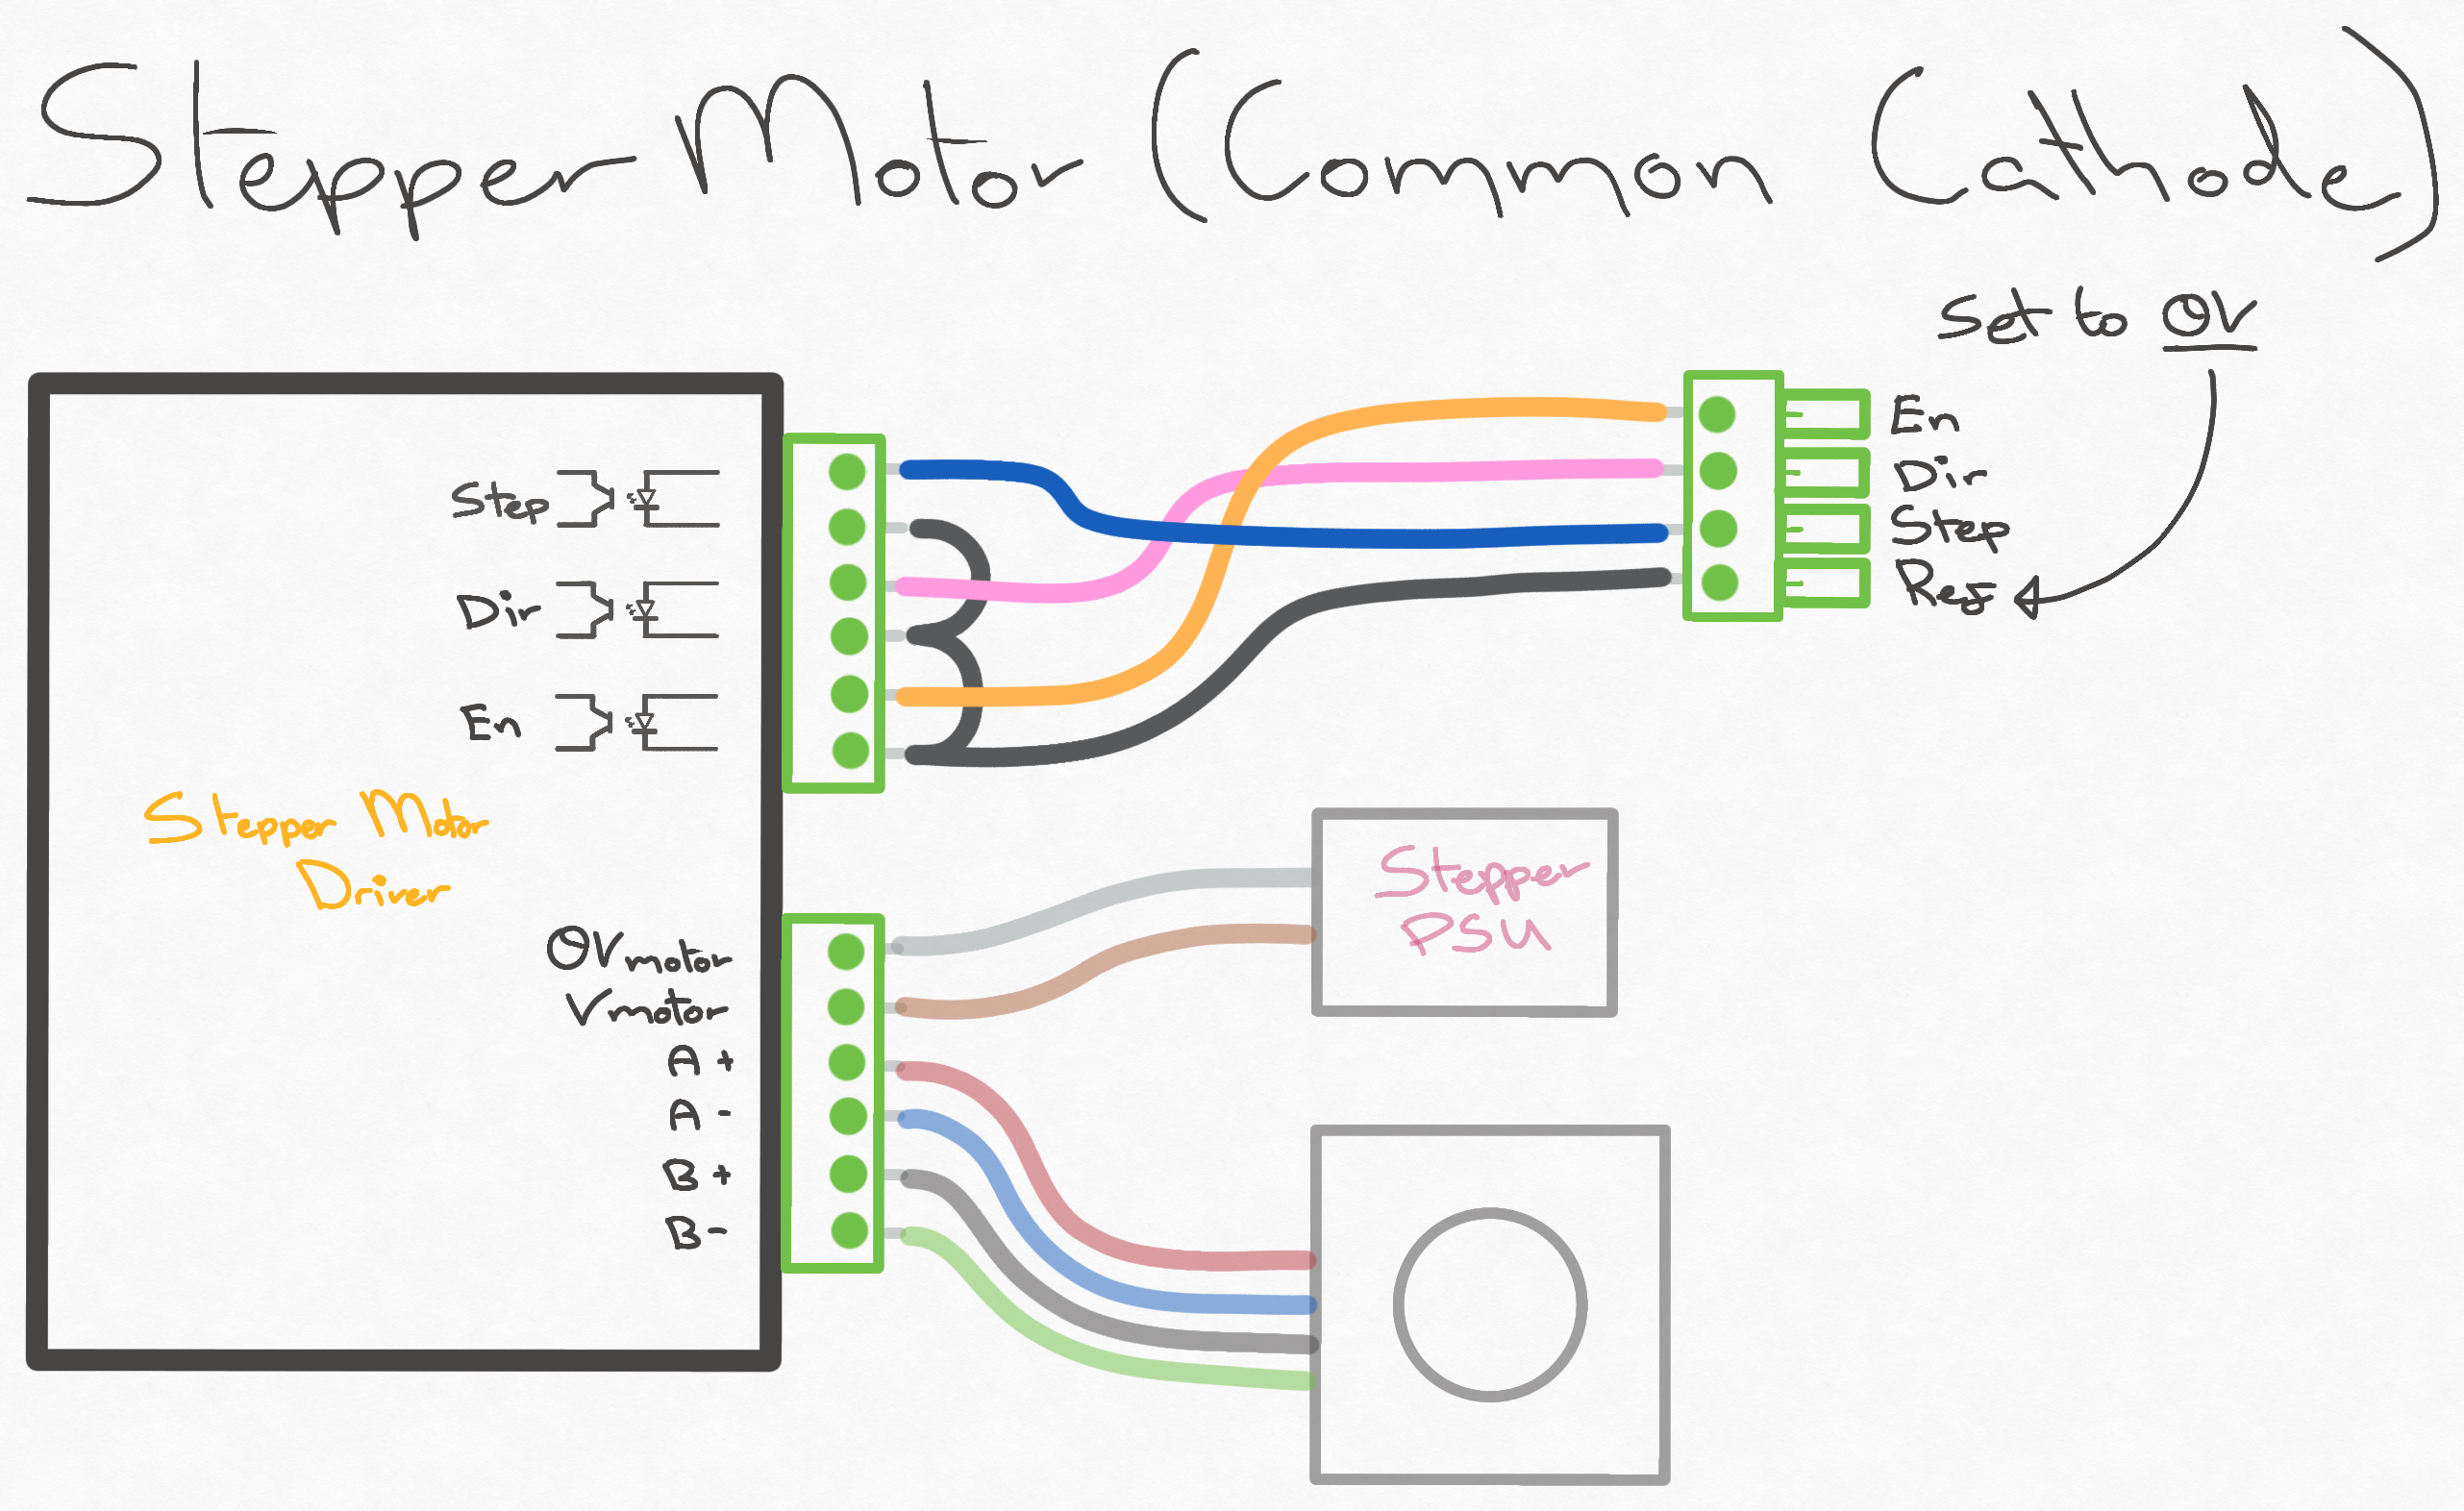 Stepper Motor (Common Cathode)
Set to 0V
En
Dir
Step
Ref
Step
Dir
En
Stepper Motor
Driver
0Vmotor
Vmotor
A+
A-
B+
B-
Stepper
PSU